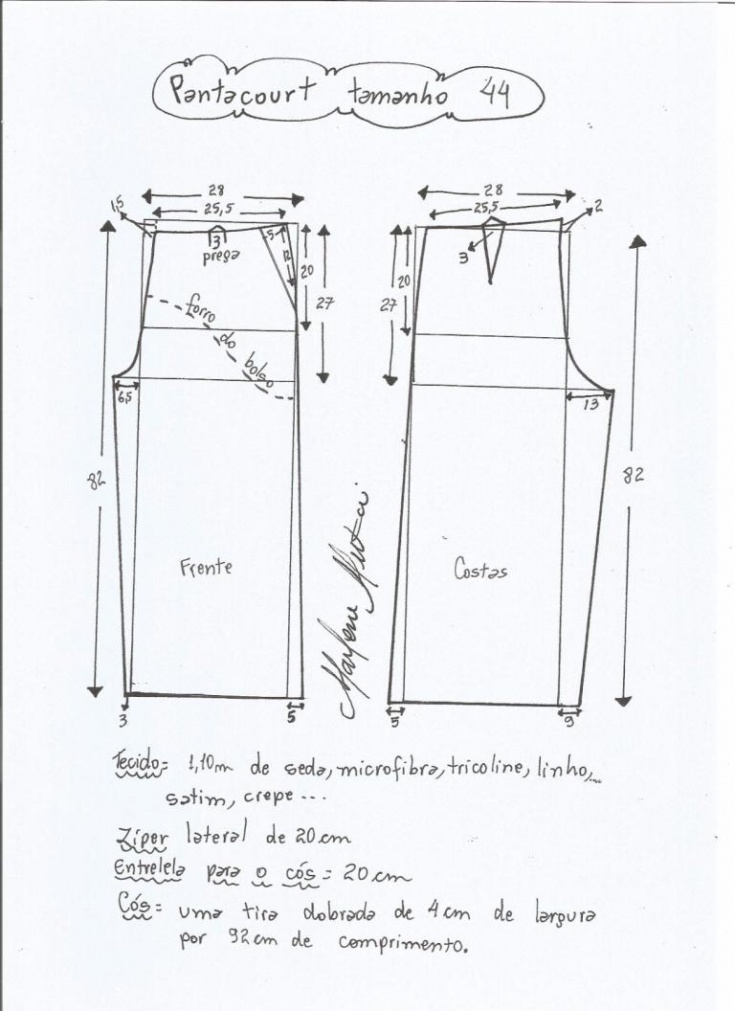 Pantacourt tamanho 44
28
25,5
1,5
3
prega
5
12
20
27
forro
do
bolso
6,5
82
Frente
3
5
28
25,5
2
3
20
27
13
82
Costas
5
9
Marlene Mukai
Tecido= 1,10m de seda, microfibra, tricoline, linho,...
satim, crepe...
Zíper lateral de 20 cm
Entrelela para o cós = 20 cm
Cós= uma tira dobrada de 4 cm de largura
por 92 cm de comprimento.